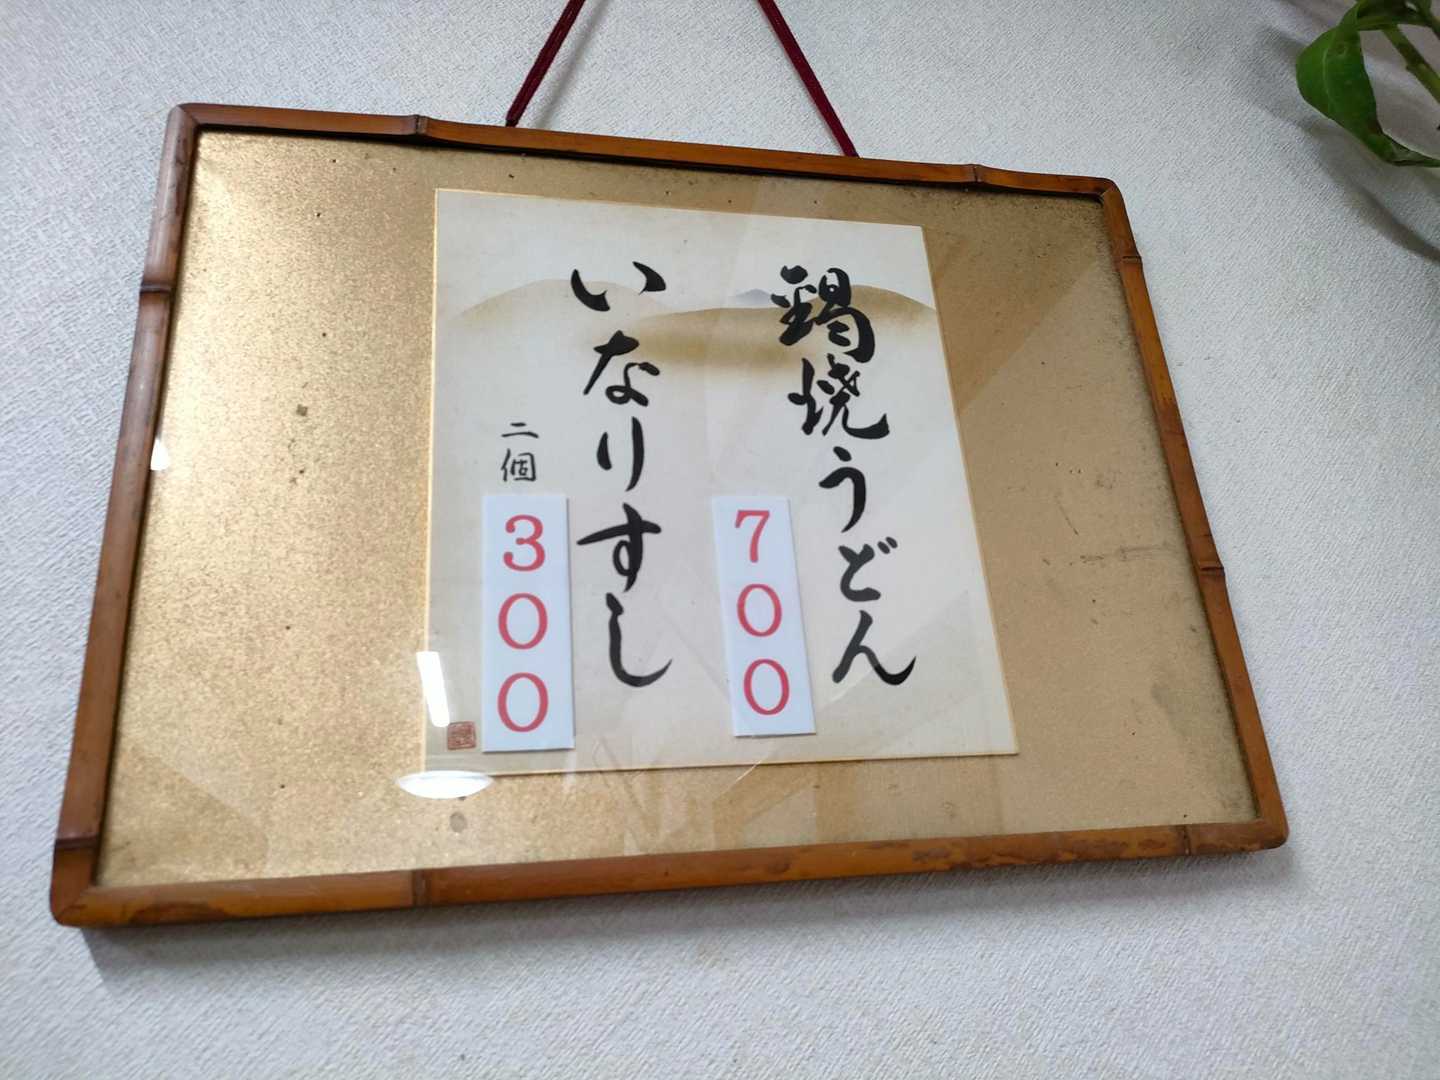 鍋焼うどん
700
いなりすし
二個
300